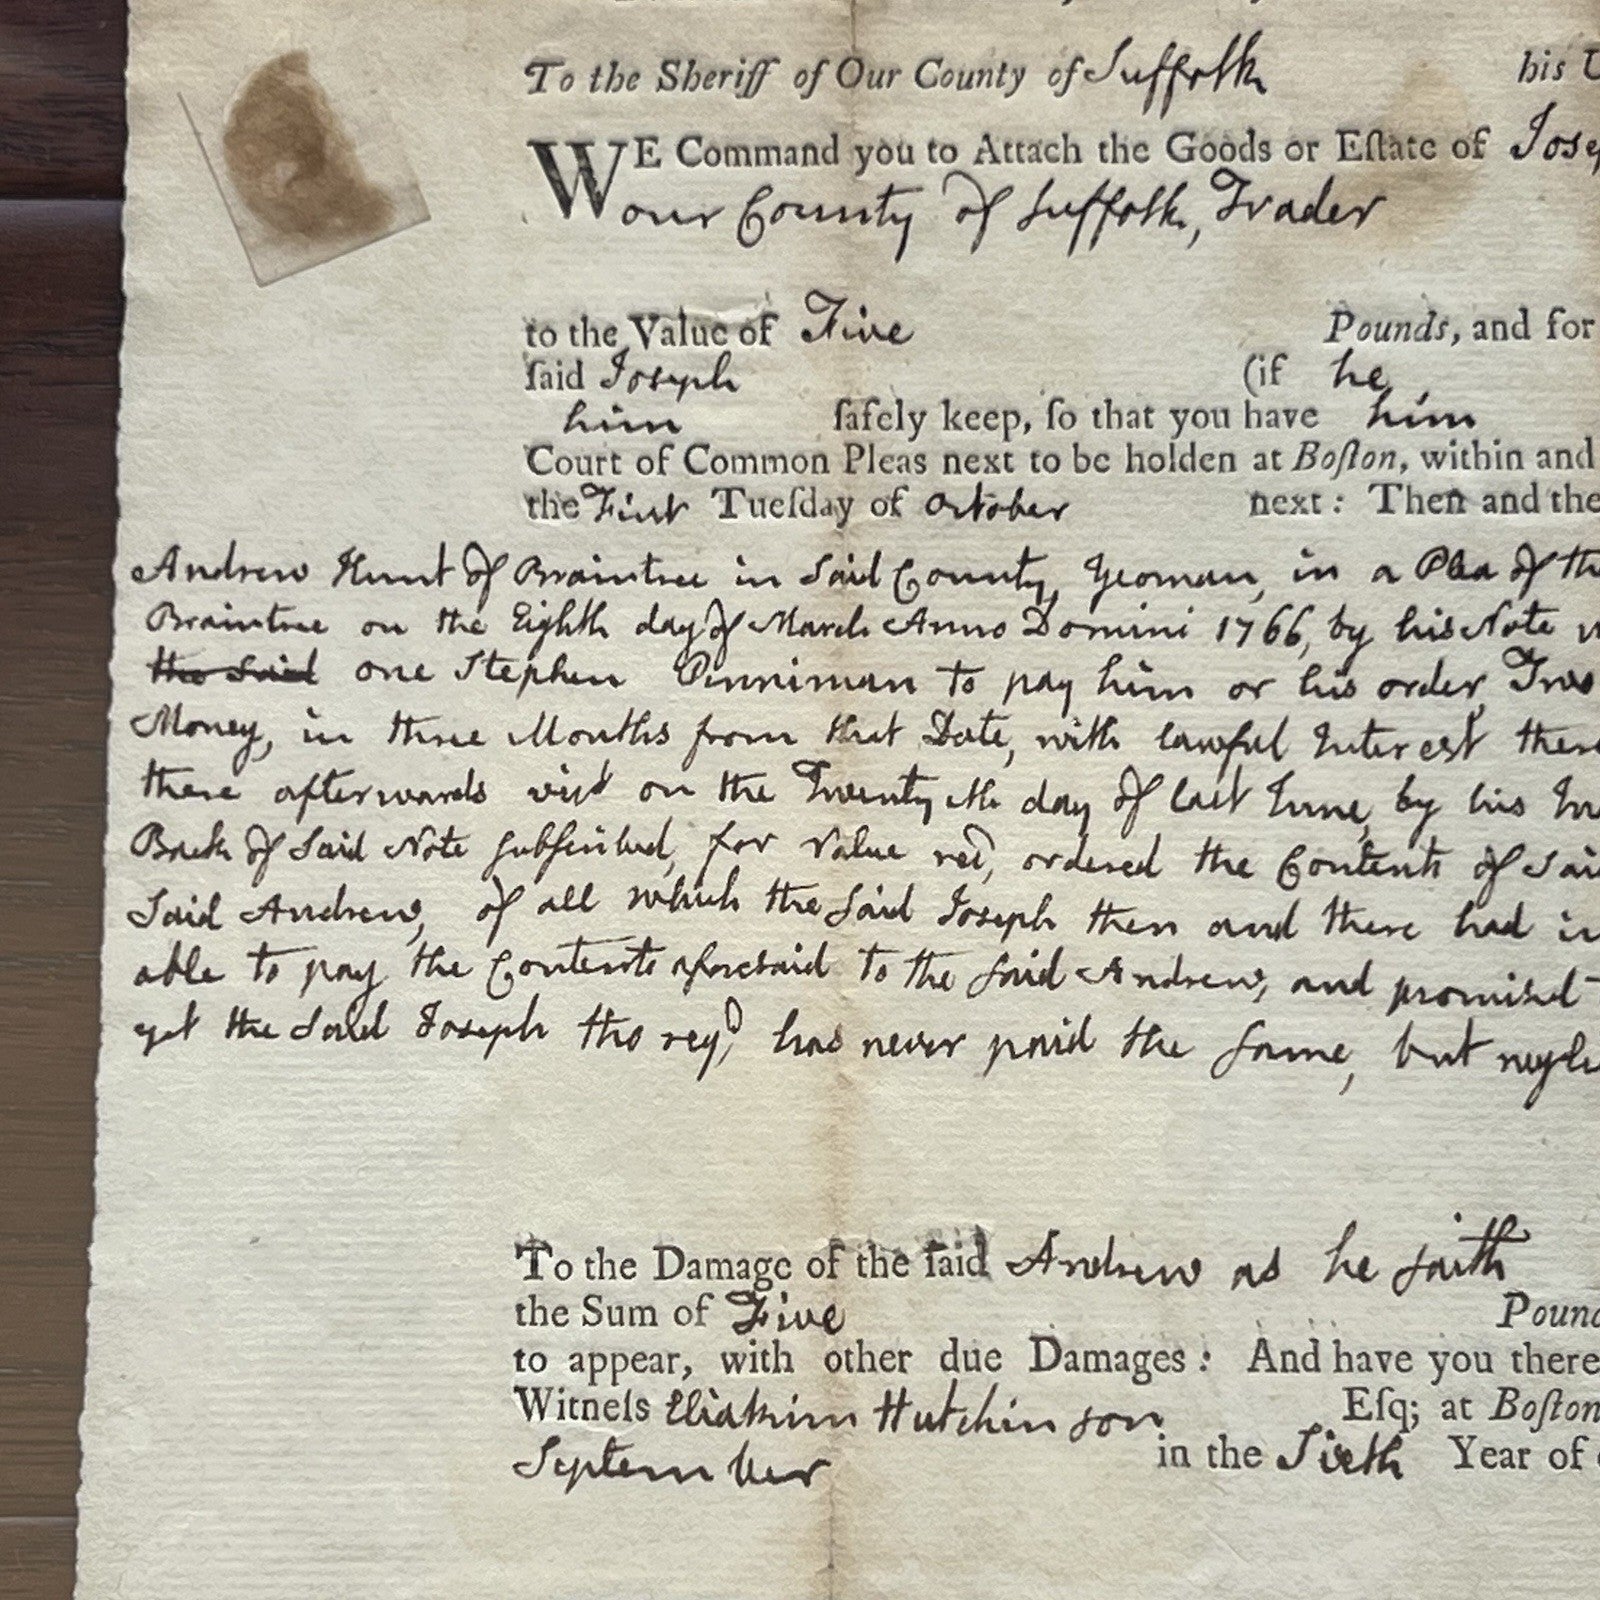 To the Sheriff of Our County of Suffolk his U
WE Command you to Attach the Goods or Eſtate of Josep
our County of Suffolk, Trader
to the Value of Five Pounds, and for
ſaid Joseph (if he
him ſafely keep, ſo that you have him
Court of Common Pleas next to be holden at Boſton, within and
the First Tueſday of October next: Then and the
Andrew Hunt of Braintree in Said County, Yeoman, in a Plea of th
Braintree on the Eighth day of March Anno Domini 1766, by his Note
the Said one Stephen Penniman to pay him or his order, Two
Money, in three Months from that Date, with lawful Interest there
there afterwards vizt on the Twentyeth day of last June, by his In
Back of Said Note subscribed, for Value recd, ordered the Contents of Sai
Said Andrew, of all which the Said Joseph then and there had
able to pay the Contents aforesaid to the Said Andrew, and promised
yet the Said Joseph tho reqd, has never paid the Same, but negle
To the Damage of the ſaid Andrew as he saith
the Sum of Five Pound
to appear, with other due Damages: And have you there
Witneſs Eliakim Hutchinson Eſq; at Boſton
September in the Sixth Year of